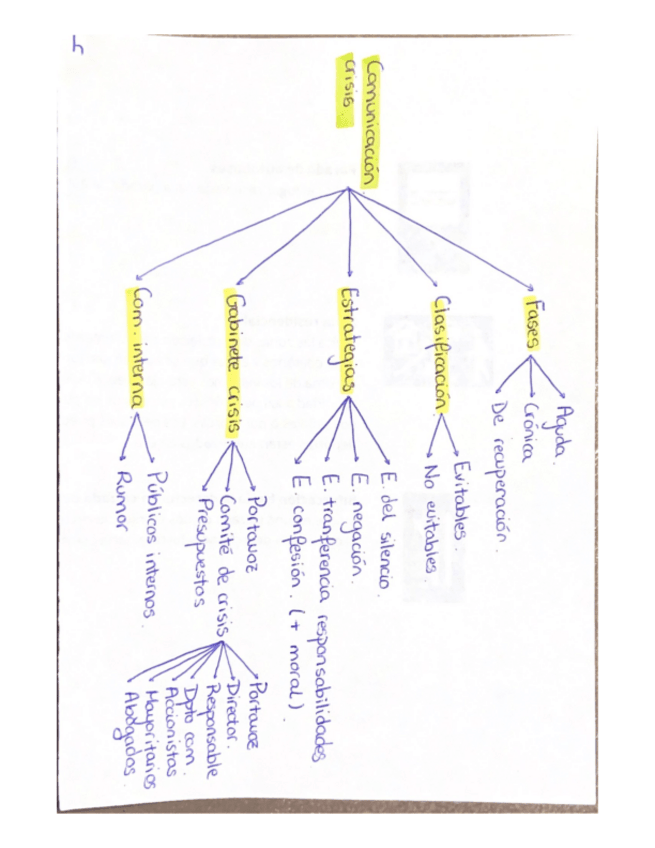 4
Comunicación
crisis.
Fases
Aguda.
Crónica
De recuperación.
Clasificación
Evitables.
No evitables.
Estrategias
E. del silencio.
E. negación.
E. tranferencia responsabilidades
E. confesión. (+ moral).
Gabinete crisis
Portavoz
Comité de crisis
Portavoz
Director.
Responsable
Dpto com.
Accionistas
Mayoritarios
Abogados.
Presupuestos
Com. interna
Públicos internos.
Rumor